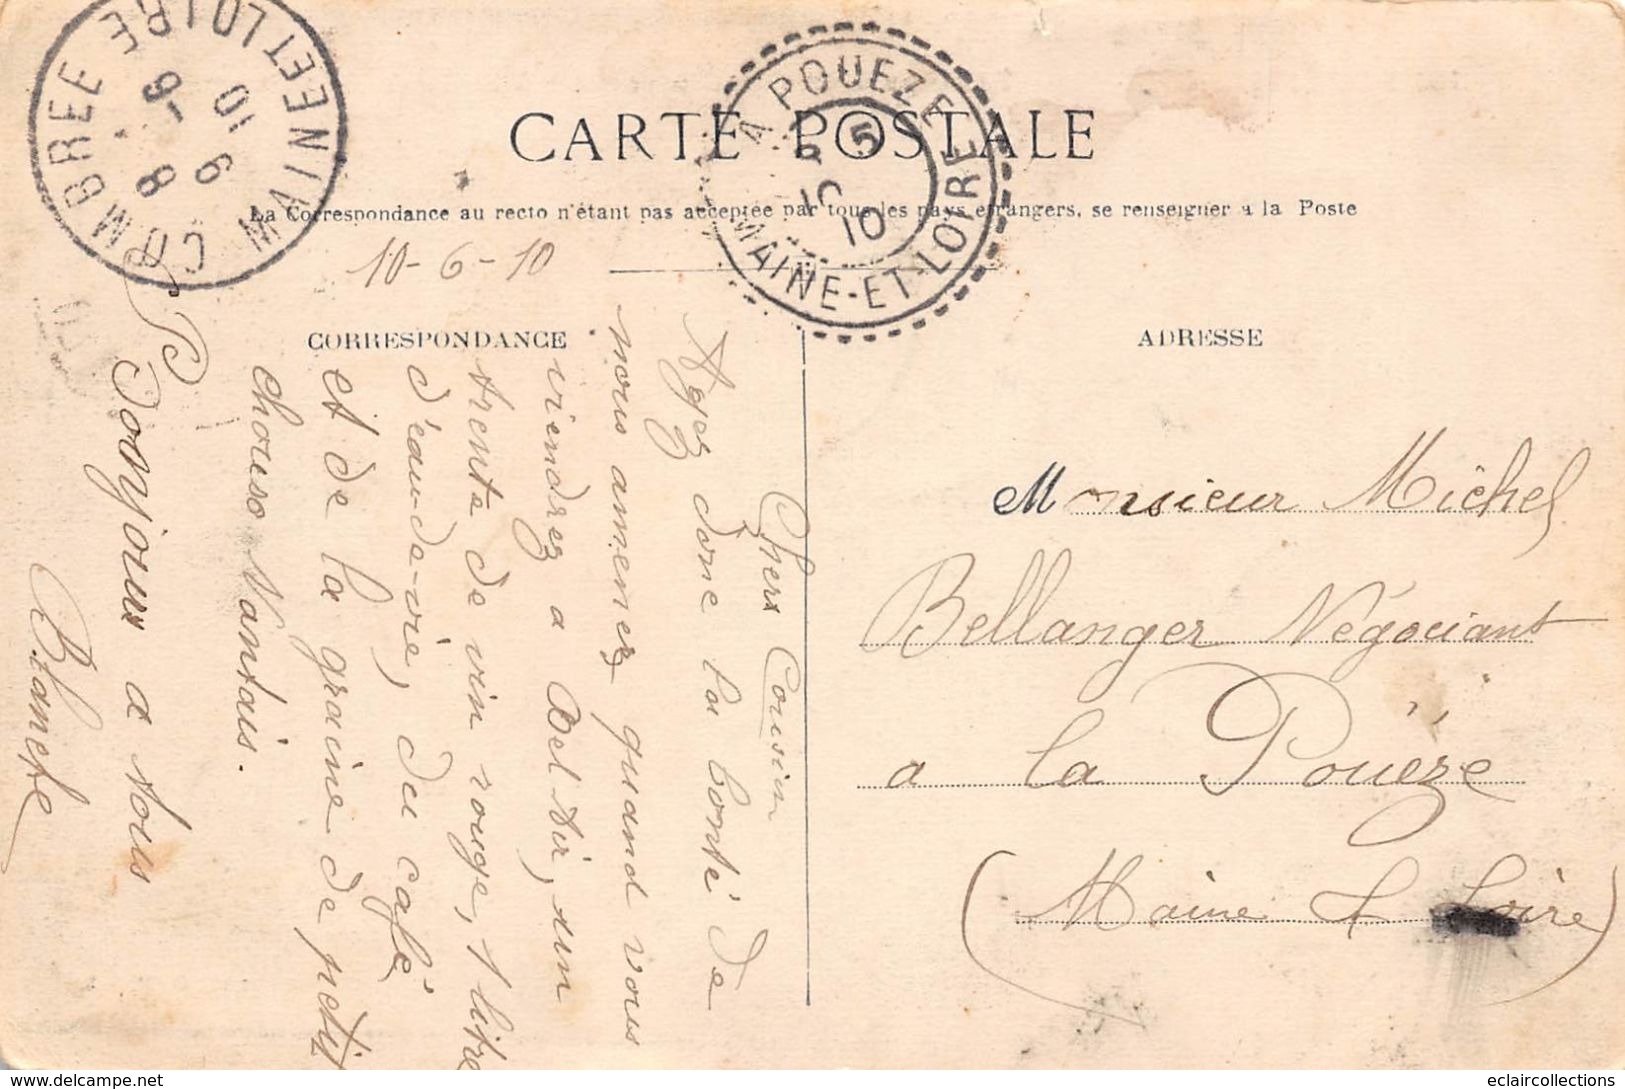 CARTE POSTALE
La Correspondance au recto n'étant pas acceptée par tous les pays étrangers, se renseigner à la Poste
COMBREE MAINE ET LOIRE
8-6
9 6 10
LA POUEZE
MAINE-ET-LOIRE
10 10
10-6-10
CORRESPONDANCE
ADRESSE
Chers Cousin
Ayez donc la bonté de
nous amenez quand vous
viendrez a Bel Air, un
trente de vin rouge, 1 litre
d'eau-de-vie, du café
et de la graine de petit
chouso Nantais.
Bonjour a vous
Blanche
Monsieur Michel
Bellanger Négociant
a la Pouëze
(Maine & Loire)
www.delcampe.net
eclaircollections